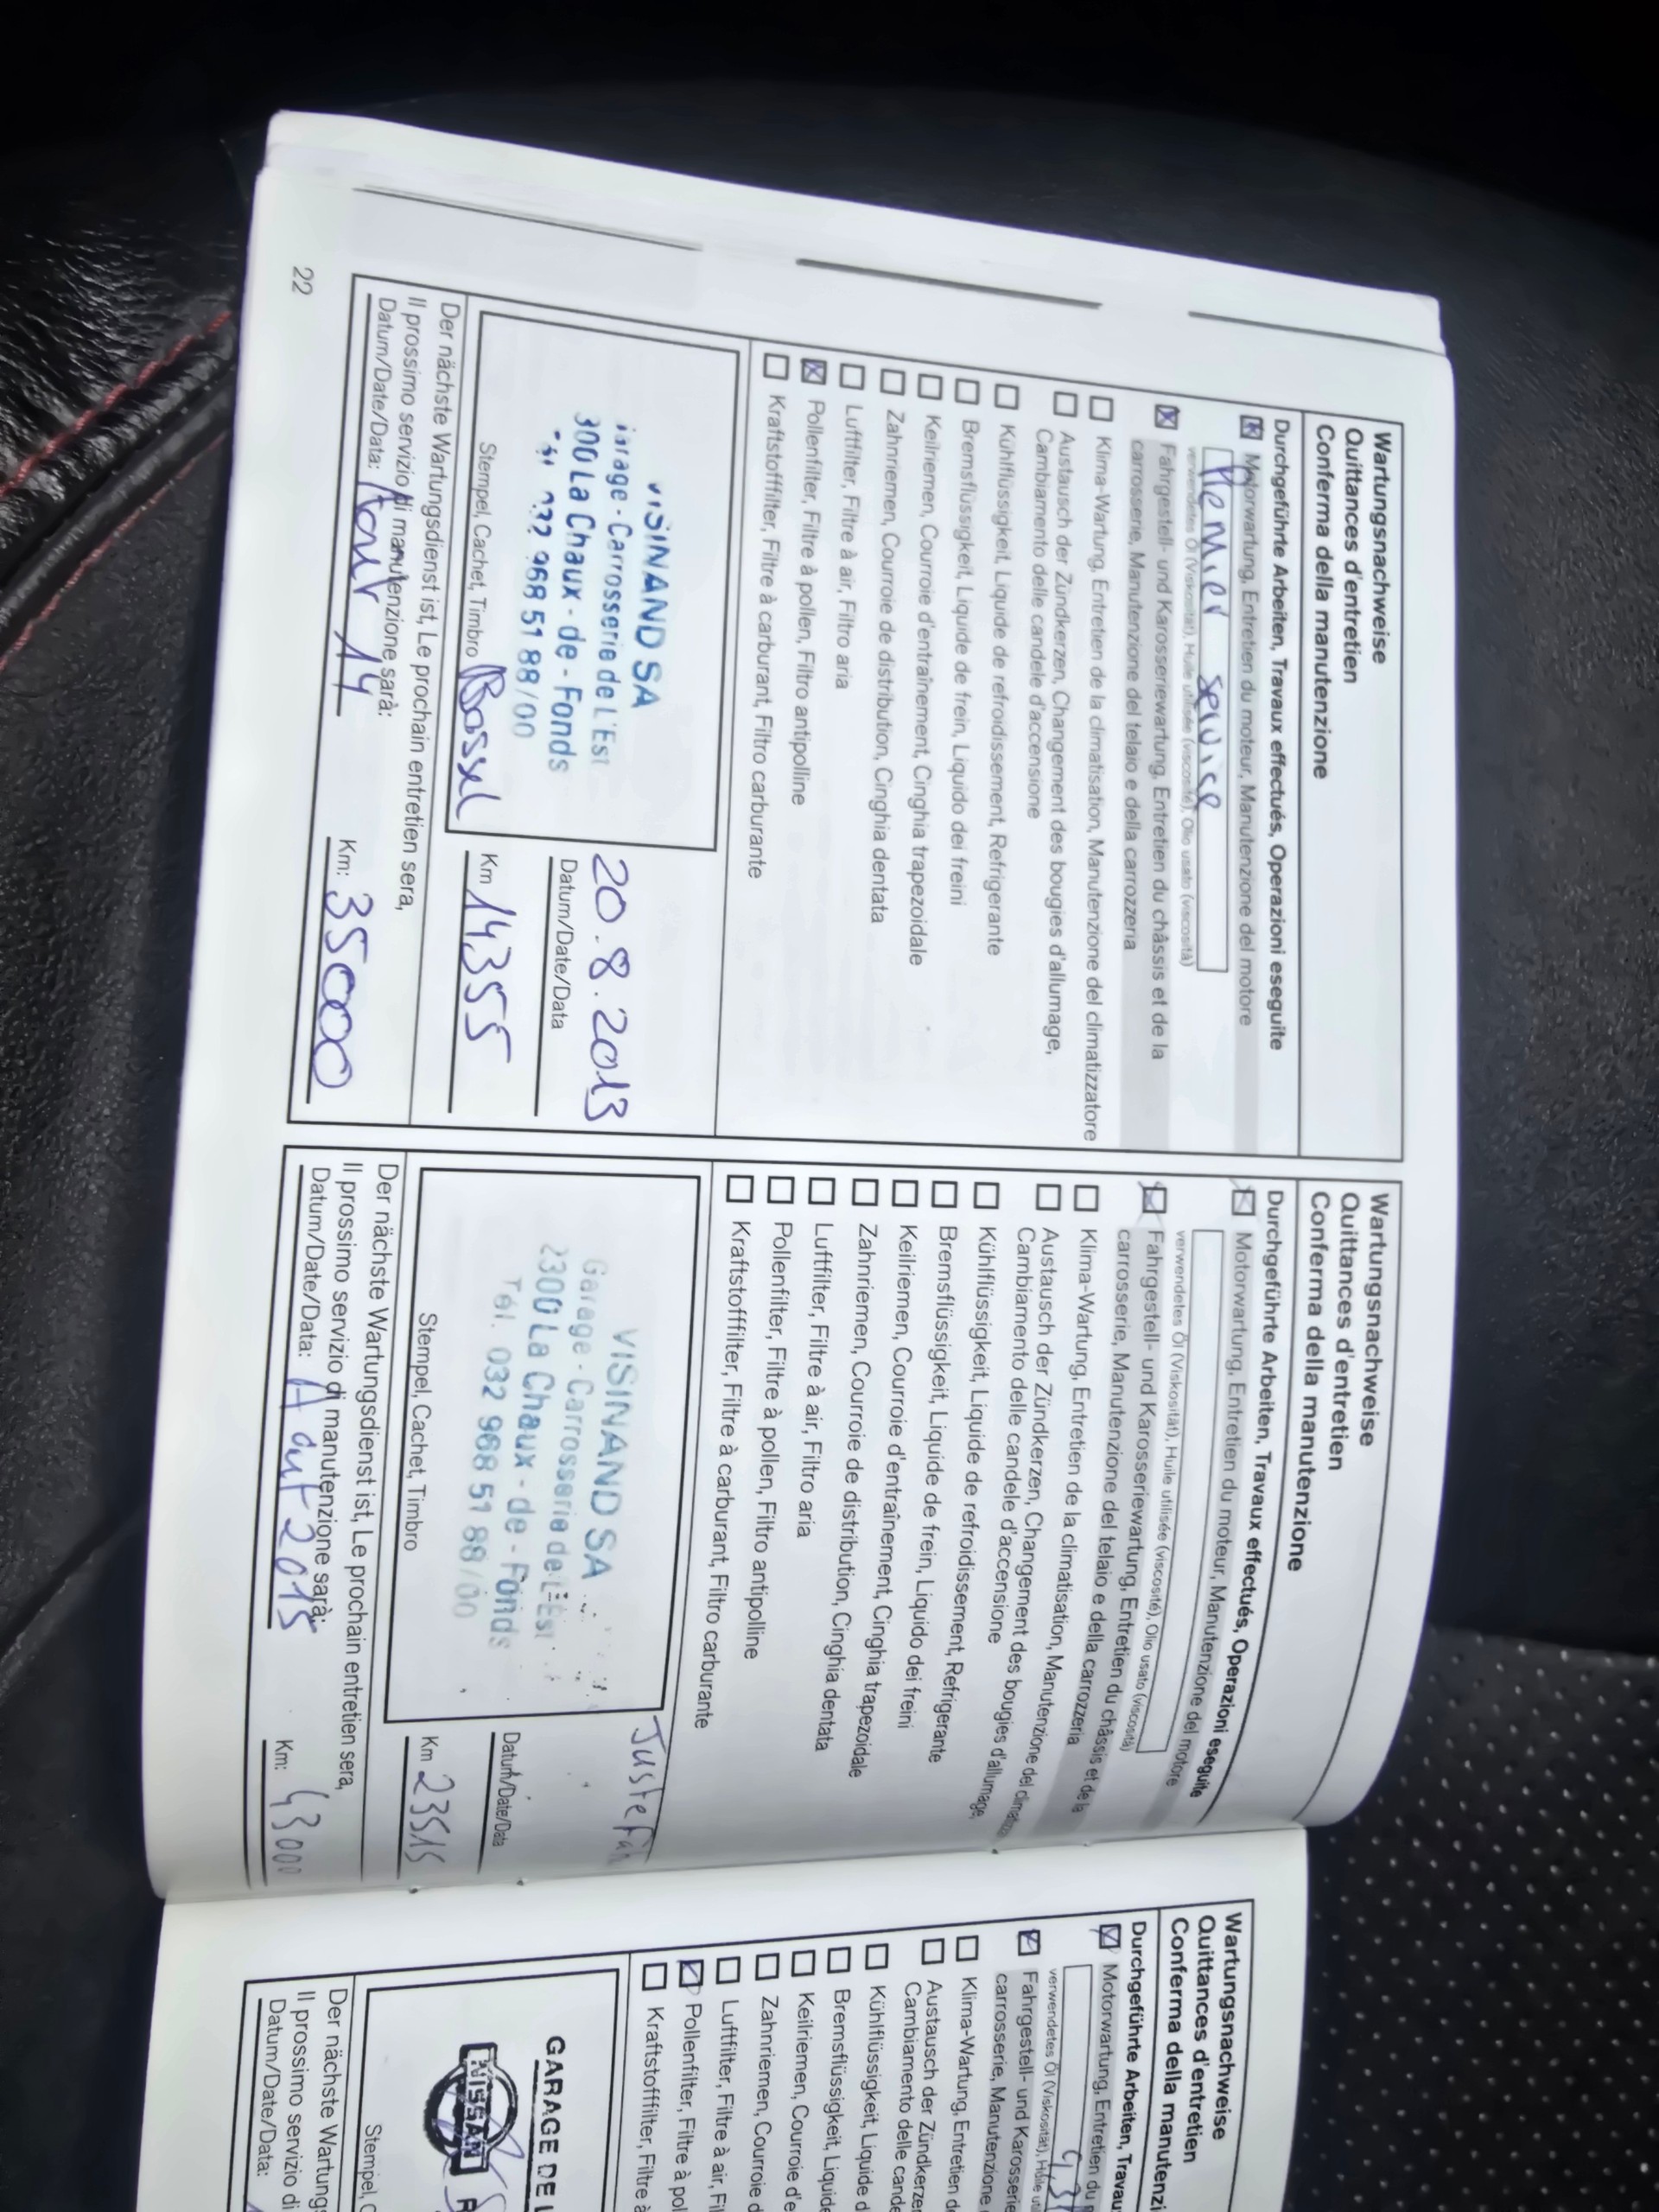 Wartungsnachweise
Quittances d'entretien
Conferma della manutenzione
Durchgeführte Arbeiten, Travaux effectués, Operazioni eseguite
Motorwartung, Entretien du moteur, Manutenzione del motore
Premier service
verwendetes Öl (Viskosität), Huile utilisée (viscosité), Olio usato (viscosità)
Fahrgestell- und Karosseriewartung, Entretien du châssis et de la
carrosserie, Manutenzione del telaio e della carrozzeria
Klima-Wartung, Entretien de la climatisation, Manutenzione del climatizzatore
Austausch der Zündkerzen, Changement des bougies d'allumage,
Cambiamento delle candele d'accensione
Kühlflüssigkeit, Liquide de refroidissement, Refrigerante
Bremsflüssigkeit, Liquide de frein, Liquido dei freini
Keilriemen, Courroie d'entraînement, Cinghia trapezoidale
Zahnriemen, Courroie de distribution, Cinghia dentata
Luftfilter, Filtre à air, Filtro aria
Pollenfilter, Filtre à pollen, Filtro antipolline
Kraftstofffilter, Filtre à carburant, Filtro carburante
VISINAND SA
Garage - Carrosserie de L'Est
300 La Chaux - de - Fonds
032 968 51 88/00
Stempel, Cachet, Timbro
20.8.2013
Datum/Date/Data
Km 14355
Der nächste Wartungsdienst ist, Le prochain entretien sera,
Il prossimo servizio di manutenzione sarà:
Datum/Date/Data: Aout 14 Km: 35000
22
Wartungsnachweise
Quittances d'entretien
Conferma della manutenzione
Durchgeführte Arbeiten, Travaux effectués, Operazioni eseguite
Motorwartung, Entretien du moteur, Manutenzione del motore
verwendetes Öl (Viskosität), Huile utilisée (viscosité), Olio usato (viscosità)
Fahrgestell- und Karosseriewartung, Entretien du châssis et de la
carrosserie, Manutenzione del telaio e della carrozzeria
Klima-Wartung, Entretien de la climatisation, Manutenzione del
Austausch der Zündkerzen, Changement des bougies d'allumage,
Cambiamento delle candele d'accensione
Kühlflüssigkeit, Liquide de refroidissement, Refrigerante
Bremsflüssigkeit, Liquide de frein, Liquido dei freini
Keilriemen, Courroie d'entraînement, Cinghia trapezoidale
Zahnriemen, Courroie de distribution, Cinghia dentata
Luftfilter, Filtre à air, Filtro aria
Pollenfilter, Filtre à pollen, Filtro antipolline
Kraftstofffilter, Filtre à carburant, Filtro carburante
VISINAND SA
Garage - Carrosserie de L'Est
2300 La Chaux - de - Fonds
Tél. 032 968 51 88/00
Stempel, Cachet, Timbro
Datum/Date/Data
Km 23515
Der nächste Wartungsdienst ist, Le prochain entretien sera,
Il prossimo servizio di manutenzione sarà:
Datum/Date/Data: Aout 2015 Km: 43000
Wartungsnachweise
Quittances d'entretien
Conferma della manutenzi
Durchgeführte Arbeiten, Travau
Motorwartung, Entretien du
verwendetes Öl (Viskosität), Huile
Fahrgestell- und Karosserie
carrosserie, Manutenzione
Klima-Wartung, Entretien d
Austausch der Zündkerzen
Cambiamento delle cande
Kühlflüssigkeit, Liquide d
Bremsflüssigkeit, Liquide
Keilriemen, Courroie d'e
Zahnriemen, Courroie d
Luftfilter, Filtre à air, Fil
Pollenfilter, Filtre à pol
Kraftstofffilter, Filtre à
GARAGE DE L
NISSAN
Stempel, C
Der nächste Wartung
Il prossimo servizio di
Datum/Date/Data: